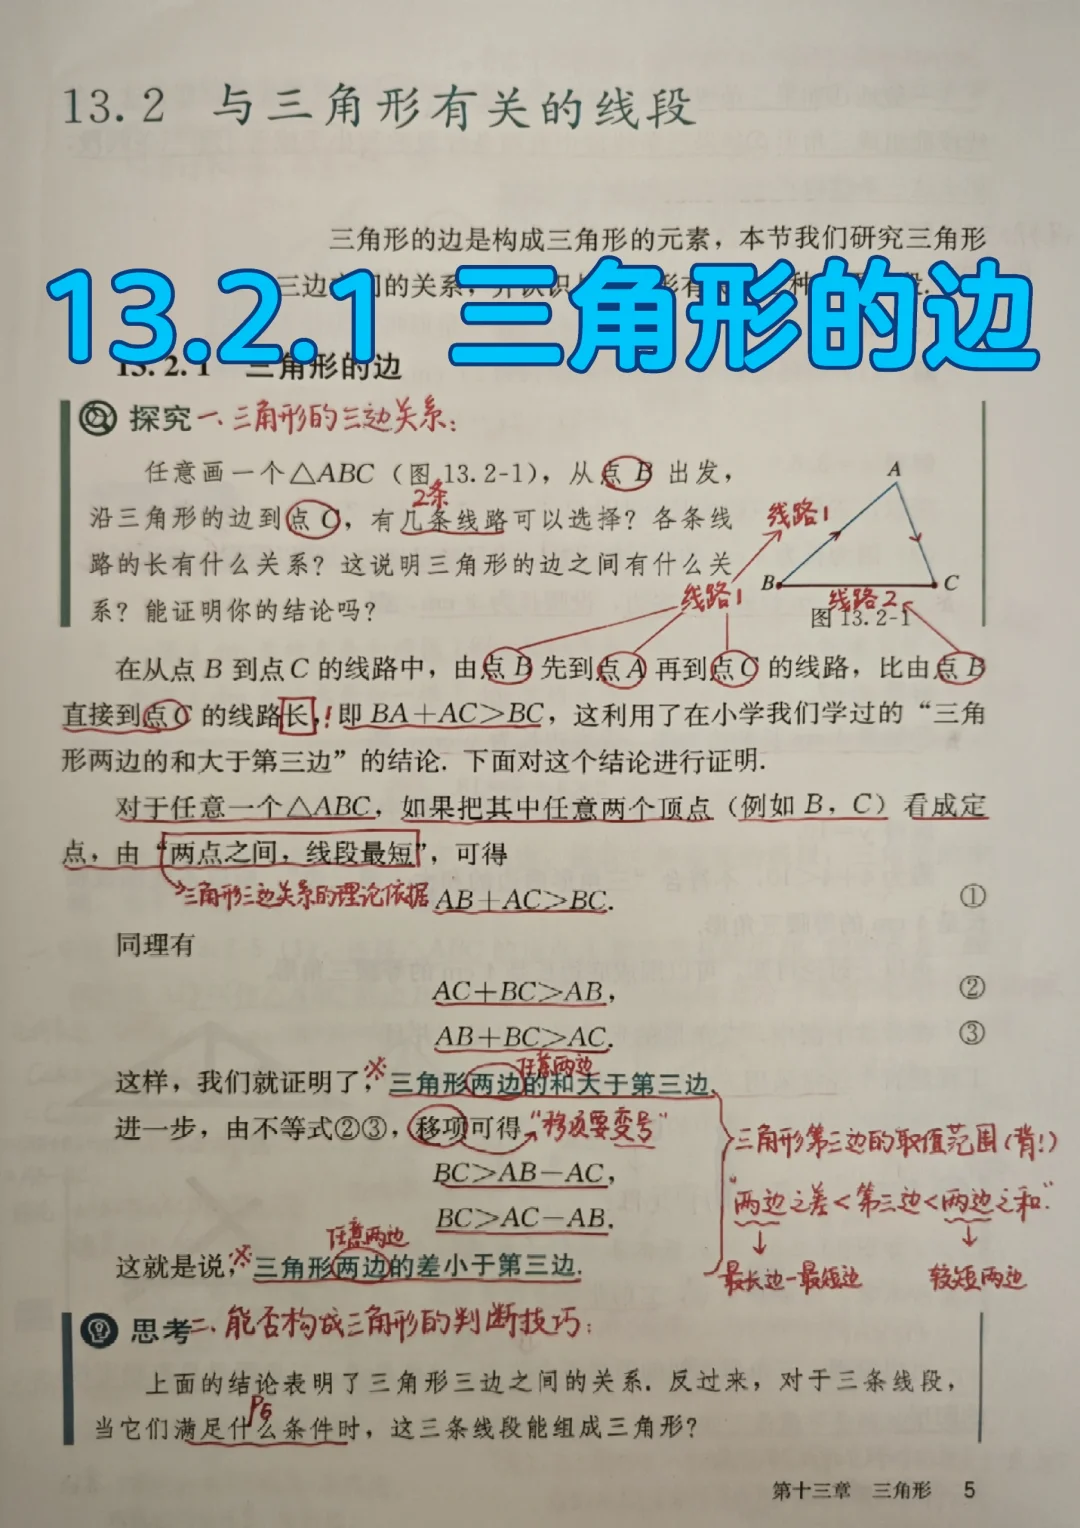 13.2 与三角形有关的线段
三角形的边是构成三角形的元素，本节我们研究三角形
三边
的关系，
13.2.1 三角形的边
13.2.1 三角形的边
探究 一、三角形的三边关系：
任意画一个△ABC（图 13.2-1），从点 B 出发，
2条
沿三角形的边到点 C，有几条线路可以选择？各条线
路的长有什么关系？这说明三角形的边之间有什么关
系？能证明你的结论吗？
A
线路1
B
C
线路1
线路2
图 13.2-1
在从点 B 到点 C 的线路中，由点 B 先到点 A 再到点 C 的线路，比由点 B
直接到点 C 的线路长，！即 BA＋AC＞BC，这利用了在小学我们学过的“三角
形两边的和大于第三边”的结论. 下面对这个结论进行证明.
对于任意一个△ABC，如果把其中任意两个顶点（例如 B，C）看成定
点，由“两点之间，线段最短”，可得
三角形三边关系的理论依据
AB＋AC＞BC. ①
同理有
AC＋BC＞AB， ②
AB＋BC＞AC. ③
任意两边
这样，我们就证明了，※三角形两边的和大于第三边.
进一步，由不等式②③，移项可得 “移项要变号”
三角形第三边的取值范围（背！）
BC＞AB－AC，
“两边之差＜第三边＜两边之和”
BC＞AC－AB.
任意两边
这就是说，※三角形两边的差小于第三边.
最长边－最短边
较短两边
思考 二、能否构成三角形的判断技巧：
上面的结论表明了三角形三边之间的关系. 反过来，对于三条线段，
P6
当它们满足什么条件时，这三条线段能组成三角形？
第十三章 三角形 5